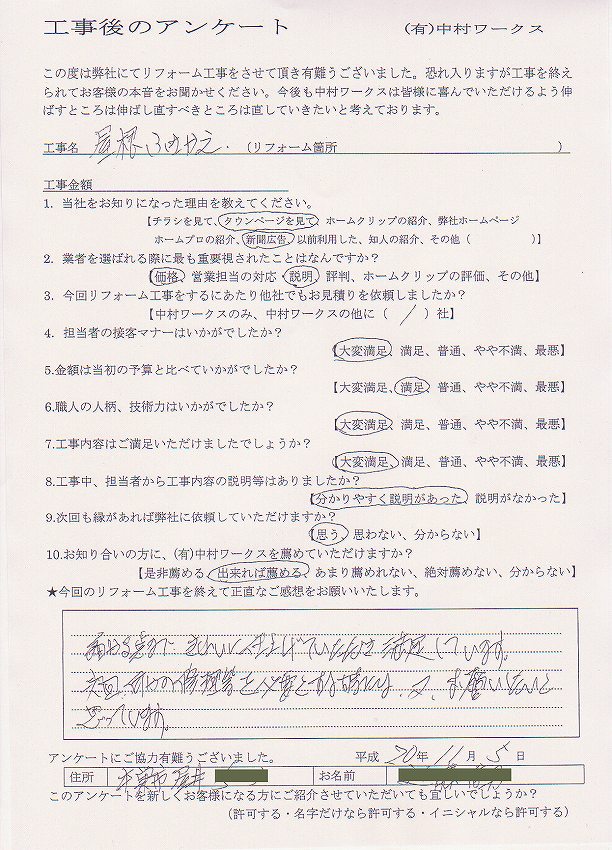 工事後のアンケート (有)中村ワークス
この度は弊社にてリフォーム工事をさせて頂き有難うございました。恐れ入りますが工事を終え
られてお客様の本音をお聞かせください。今後も中村ワークスは皆様に喜んでいただけるよう伸
ばすところは伸ばし直すべきところは直していきたいと考えております。
工事名 屋根ふきかえ. (リフォーム箇所 )
工事金額
1. 当社をお知りになった理由を教えてください。
【チラシを見て、タウンページを見て、ホームクリップの紹介、弊社ホームページ
ホームプロの紹介、新聞広告、以前利用した、知人の紹介、その他( )】
2. 業者を選ばれる際に最も重要視されたことはなんですか?
【価格、営業担当の対応・説明、評判、ホームクリップの評価、その他】
3. 今回リフォーム工事をするにあたり他社でもお見積りを依頼しましたか?
【中村ワークスのみ、中村ワークスの他に( / )社】
4. 担当者の接客マナーはいかがでしたか?
【大変満足、満足、普通、やや不満、最悪】
5.金額は当初の予算と比べていかがでしたか?
【大変満足、満足、普通、やや不満、最悪】
6.職人の人柄、技術力はいかがでしたか?
【大変満足、満足、普通、やや不満、最悪】
7.工事内容はご満足いただけましたでしょうか?
【大変満足、満足、普通、やや不満、最悪】
8.工事中、担当者から工事内容の説明等はありましたか?
【分かりやすく説明があった、説明がなかった】
9.次回も縁があれば弊社に依頼していただけますか?
【思う、思わない、分からない】
10.お知り合いの方に、(有)中村ワークスを薦めていただけますか?
【是非薦める、出来れば薦める、あまり薦めれない、絶対薦めない、分からない】
★今回のリフォーム工事を終えて正直なご感想をお願いいたします。
きれいに仕上げていただき満足しています。
次回、修理等を必要とする場合は、又、お願いしたいと
思っています。
アンケートにご協力有難うございました。 平成 20年 11月 5日
住所 本巣市 お名前
このアンケートを新しくお客様になる方にご紹介させていただいても宜しいでしょうか?
(許可する・名字だけなら許可する・イニシャルなら許可する)